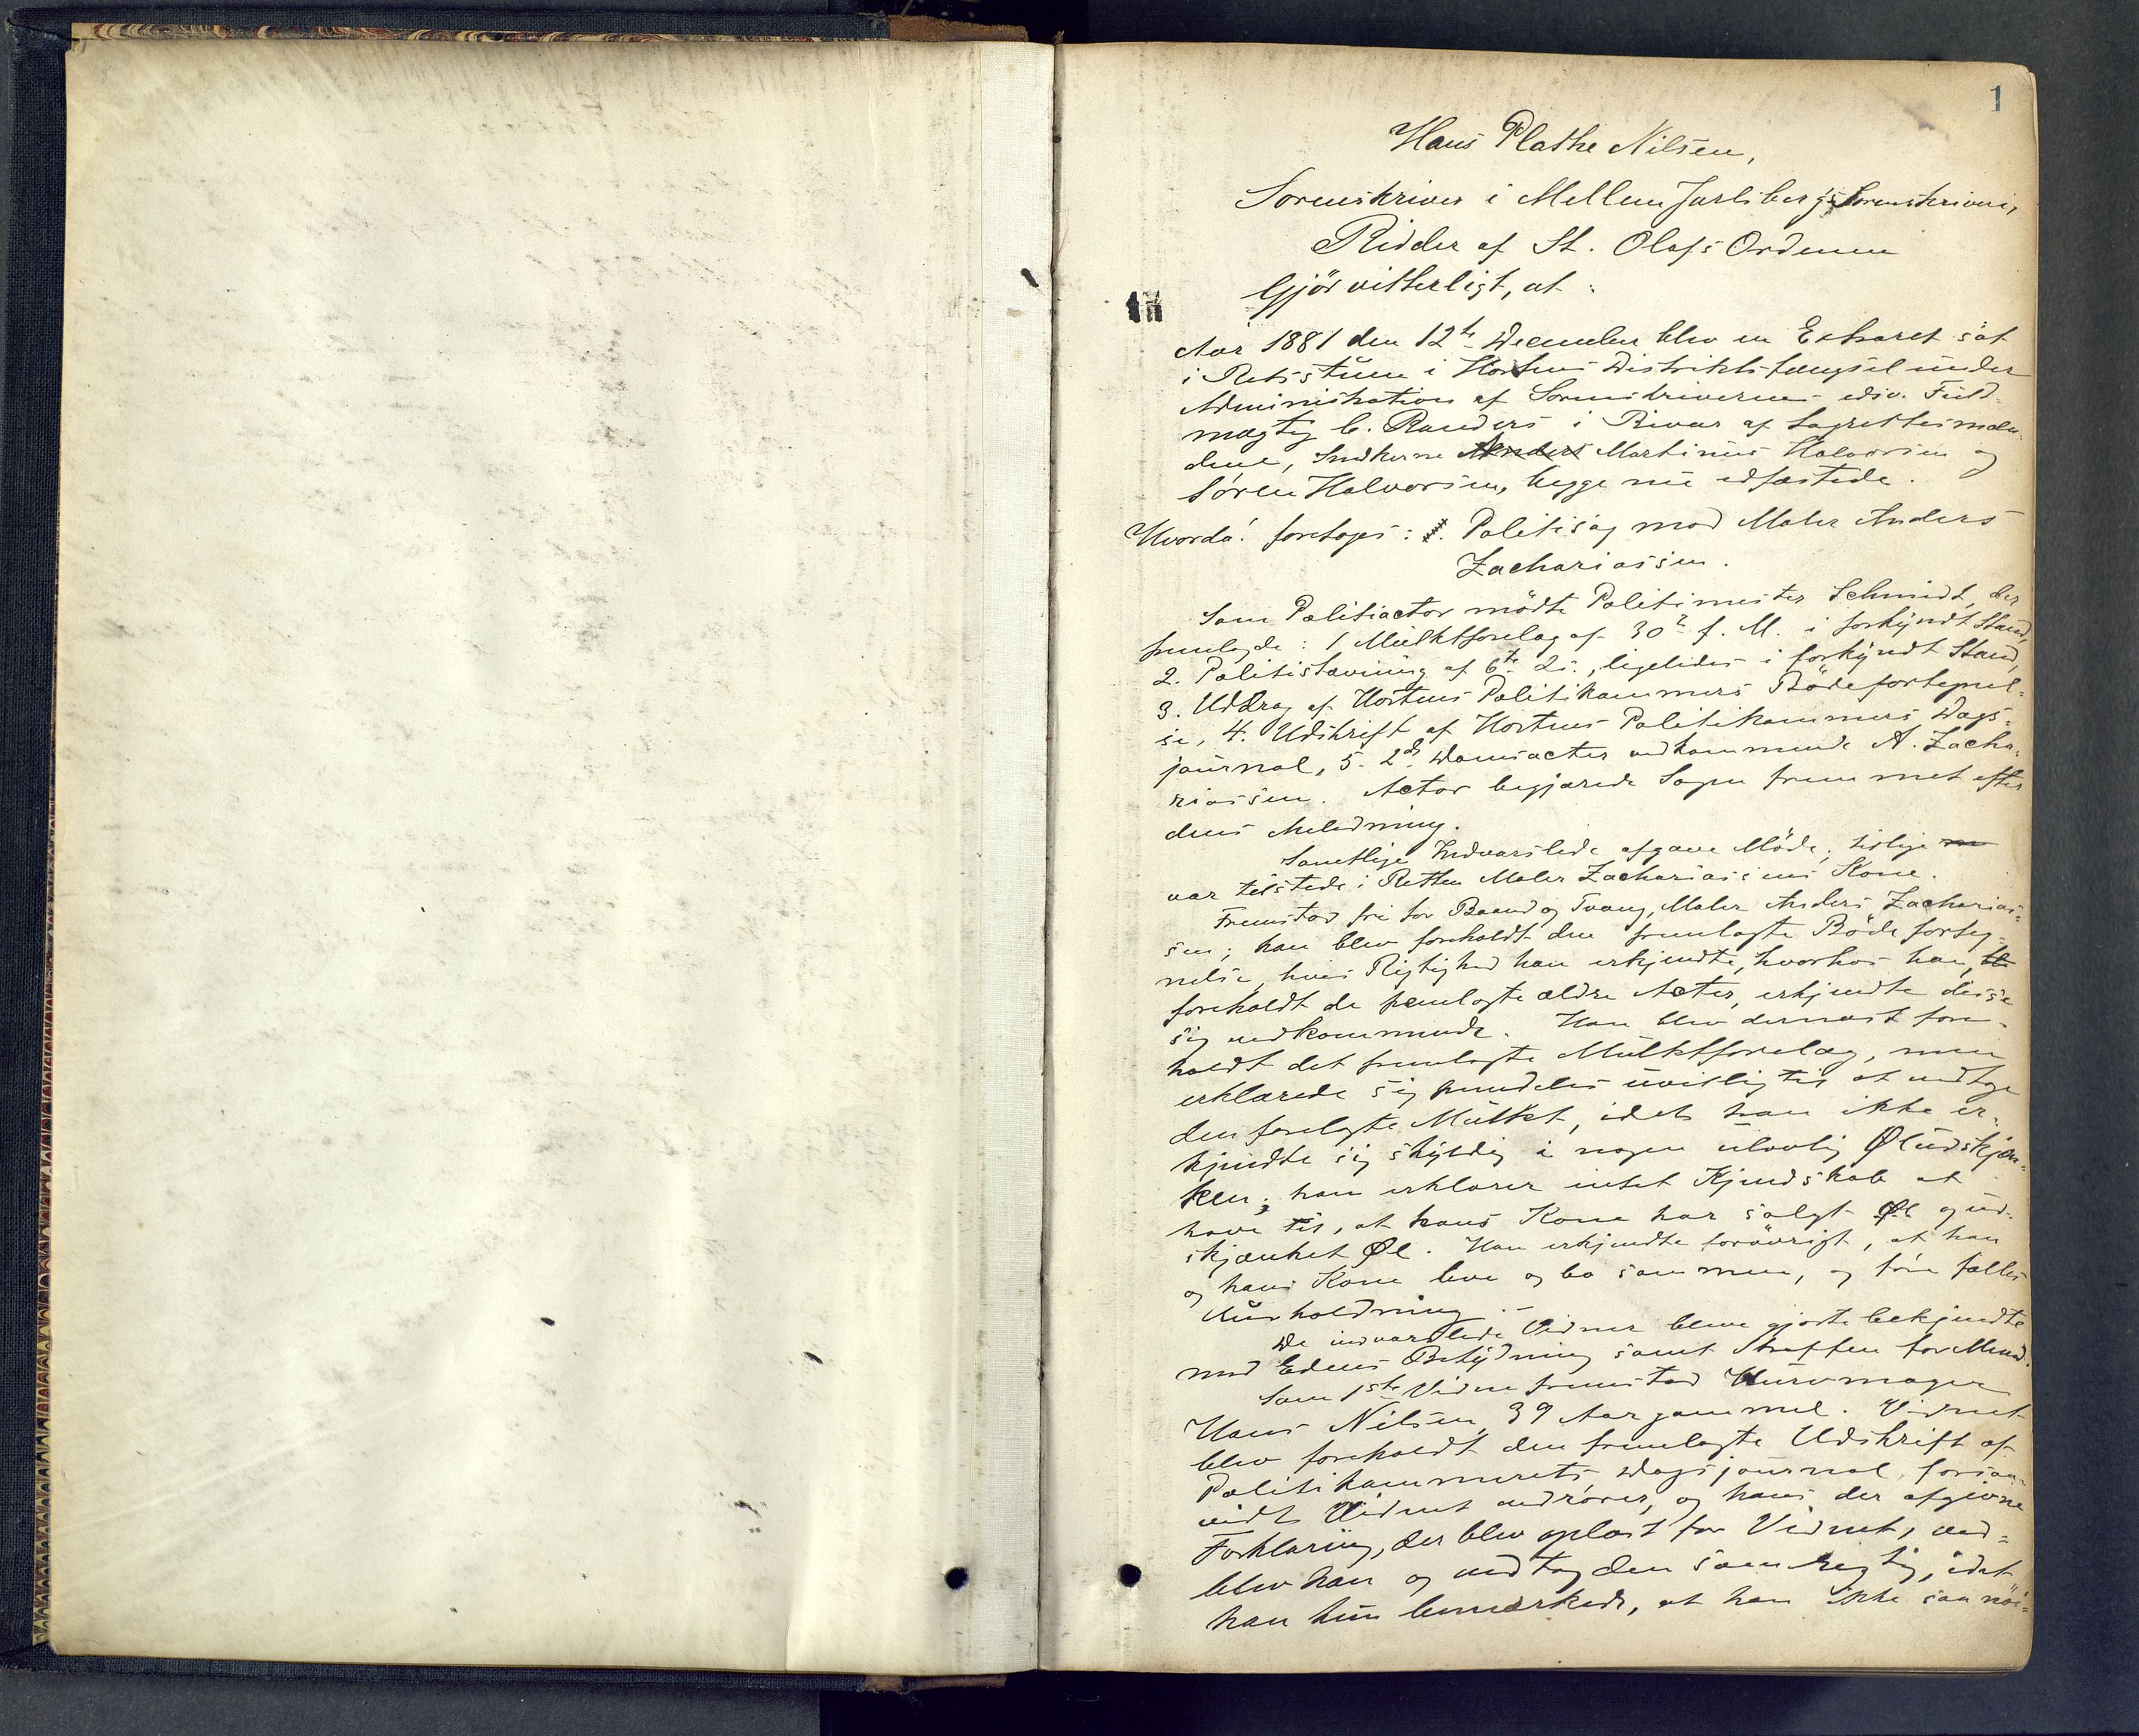 1
Hans Plathe Nilsen,
Sorenskriver i Mellem Jarlsbergs Sorenskriveri,
Ridder af St. Olafs Ordenen
Gjör vitterligt, at:
Aar 1881 den 12te December blev en Extraret sat
i Retsstuen i Hortens Distriktsfængsel under
Administration af Sorenskriverens edsv. Fuld-
mægtig C. Randers i Bivær af Lagrettesmæn-
dene, Snedkerne Martinus Halvorsen og
Sören Halvorsen, begge nu edfæstede.
Hvorda! foretoges: Politisag mod Maler Anders
Zachariassen.
Som Politiactor mödte Politimester Schmidt, der
fremlagde: 1 Mulktforelæg af 30te f. M. i forkyndt Stand,
2. Politistævning af 6te ds., ligeledes i forkyndt Stand,
3. Uddrag af Hortens Politikammers Bödefortegnel-
se, 4. Udskrift af Hortens Politikammers Dags-
journal, 5. 2de Domsacter vedkommende A. Zacha-
riassen. Actor begjærede Sagen fremmet efter
dens Anledning.
Samtlige Indvarslede afgave Möde; tillige
var tilstede i Retten Maler Zachariassens Kone.
Fremstod fri for Baand og Tvang, Maler Anders Zacharias-
sen; han blev foreholdt den fremlagte Bödeforteg-
nelse, hvis Rigtighed han erkjendte, hvorhos han,
foreholdt de fremlagte ældre Acter, erkjendte disse
sig vedkommende. Han blev dernæst fore-
holdt det fremlagte Mulktforelæg, men
erklærede sig fremdeles uvillig til at vedtage
den forelagte Mulkt, idet han ikke er-
kjendte sig skyldig i nogen ulovlig Öludskjæn-
ken; han erklærer intet Kjendskab at
have til, at hans Kone har solgt Øl og ud-
skjænket Øl. Han erkjendte forövrigt, at han
og hans Kone leve og bo sammen, og före fælles
Husholdning.
De indvarslede Vidner bleve gjorte bekjendte
med Edens Betydning samt Straffen for Mened.
Som 1ste Vidne fremstod Kurvmager
Hans Nilsen, 39 Aar gammel. Vidnet
blev foreholdt den fremlagte Udskrift af
Politikammerets Dagsjournal, forsaa-
vidt Vidnet vedrörer, og hans der afgivne
Forklaring, der blev oplæst for Vidnet, ved-
blev han og vedtog den som rigtig, idet
han kun bemærkede, at han ikke saa nöi-